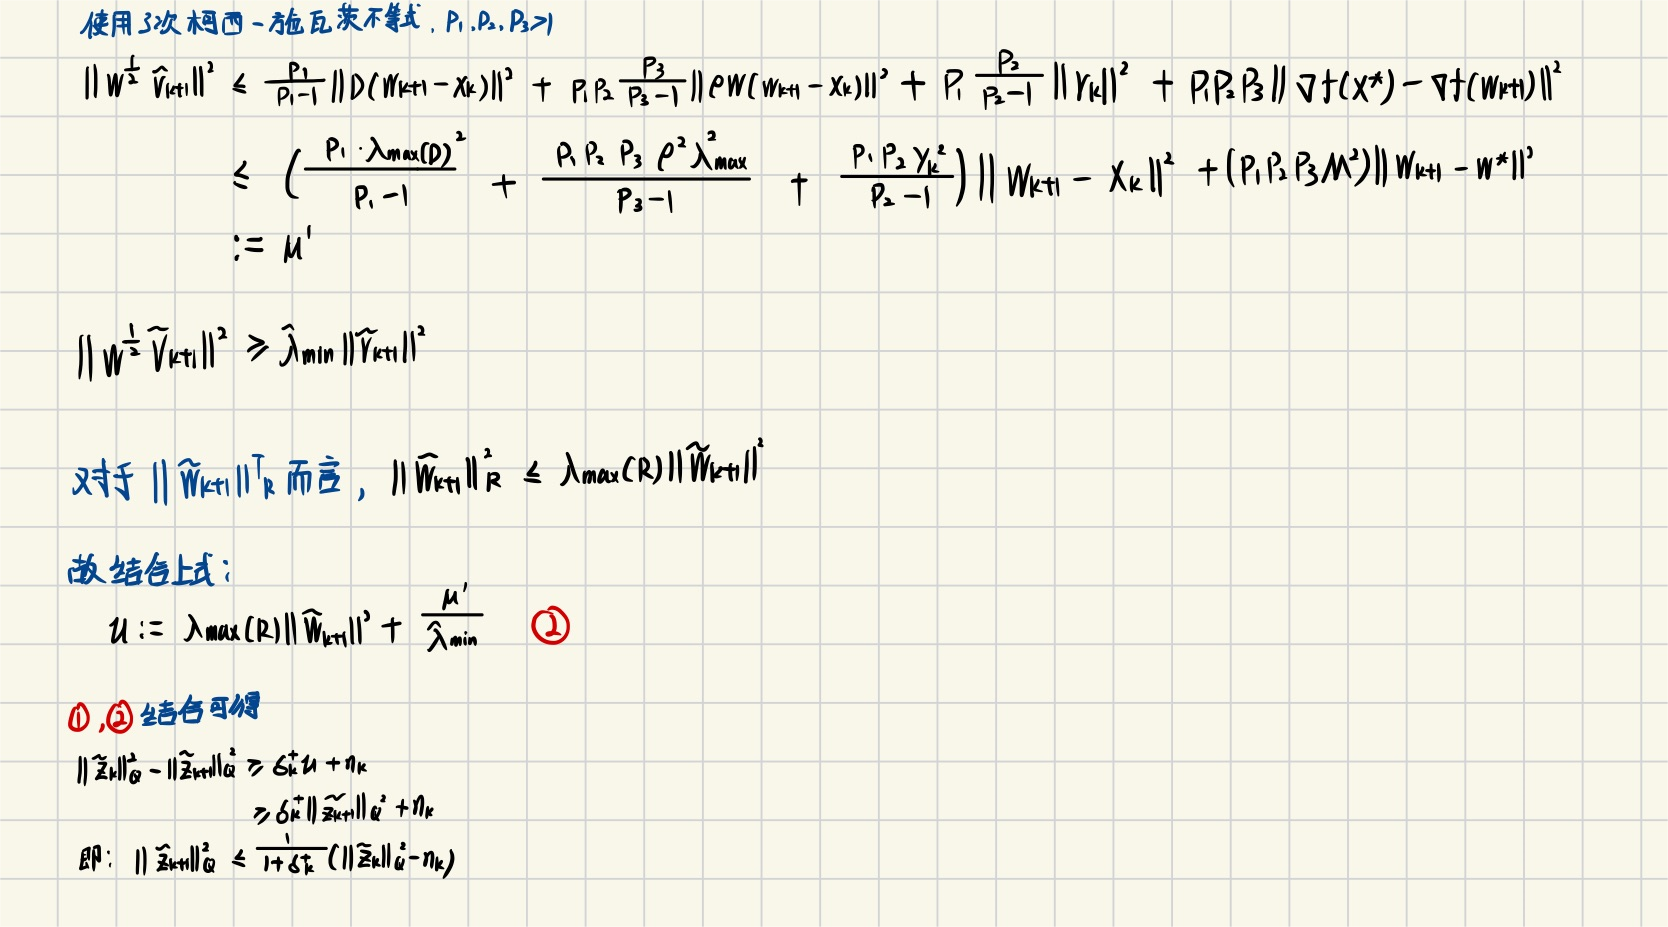 使用3次柯西-施瓦茨不等式, P₁,P₂,P₃>1
||W^{1/2} Ṽ_{k+1}||² ≤ P₁/(P₁-1) ||D(W_{k+1}-X_k)||² + P₁P₂ P₃/(P₃-1) ||ρW(W_{k+1}-X_k)||² + P₁ P₂/(P₂-1) ||γ_k||² + P₁P₂P₃||∇f(X*)-∇f(W_{k+1})||²
≤ (P₁·λmax(D)²/(P₁-1) + P₁P₂P₃ρ²λ²max/(P₃-1) + P₁P₂γ_k²/(P₂-1)) ||W_{k+1}-X_k||² + (P₁P₂P₃M²)||W_{k+1}-W*||²
:= μ'
||W^{1/2} Ṽ_{k+1}||² ≥ λ̂min||Ṽ_{k+1}||²
对于 ||W̃_{k+1}||ᵀ_R 而言, ||W̃_{k+1}||²_R ≤ λmax(R)||W̃_{k+1}||²
故结合上式:
u := λmax(R)||W̃_{k+1}||² + μ'/λ̂min ②
①,②结合可得
||z̃_k||²_Q - ||z̃_{k+1}||²_Q ≥ δ_k⁺u + η_k
≥ δ_k⁺||z̃_{k+1}||²_Q + η_k
即: ||z̃_{k+1}||²_Q ≤ 1/(1+δ_k⁺) (||z̃_k||²_Q-η_k)